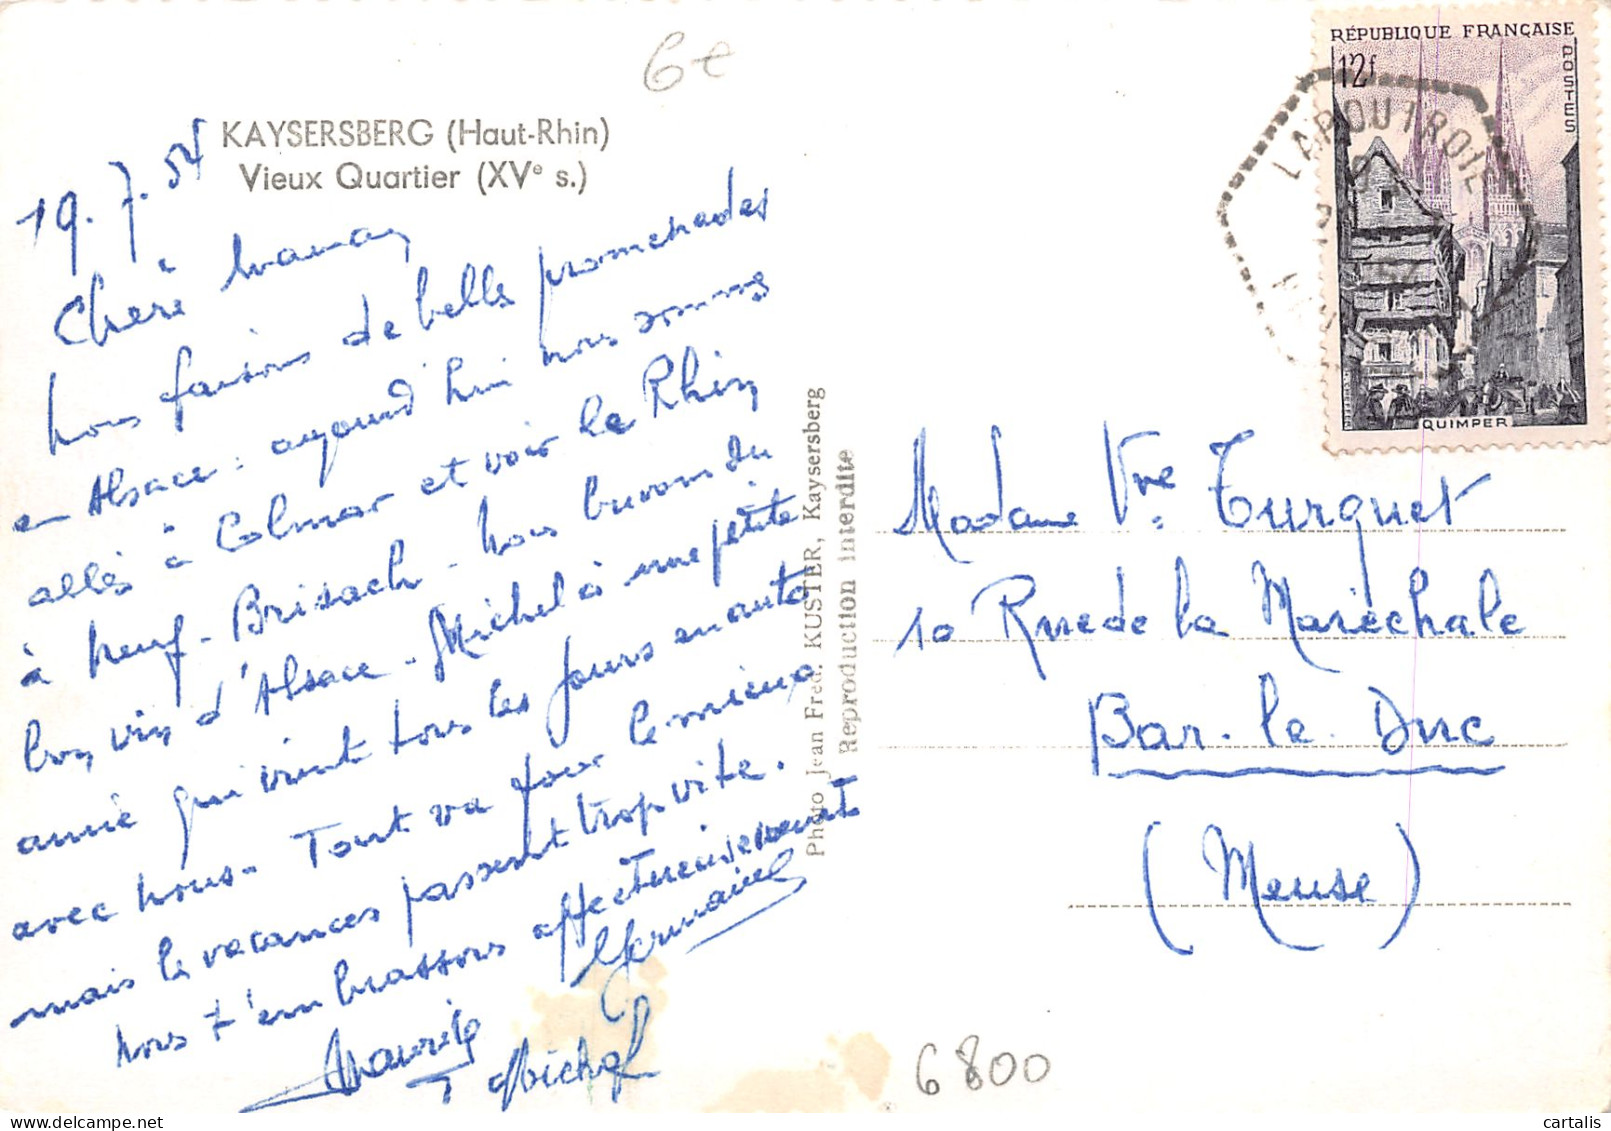 6€
KAYSERSBERG (Haut-Rhin)
Vieux Quartier (XVe s.)
19.7.54
Chère maman
nous faisons de belles promenades
en Alsace : aujourd'hui nous sommes
allés à Colmar et voir le Rhin
à Neuf-Brisach - nous buvons du
bon vin d'Alsace - Michel a une petite
amie qui vient tous les jours en auto
avec nous - Tout va pour le mieux
mais les vacances passent trop vite.
nous t'embrassons affectueusement
Germaine
Maurice
Michel
Photo Jean Fred. KUSTER, Kaysersberg
Reproduction interdite
RÉPUBLIQUE FRANÇAISE
12f
POSTES
QUIMPER
LAPOUTROIE
Madame Vve Turquet
10 Rue de la Maréchale
Bar-le-Duc
(Meuse)
6800
cartalis